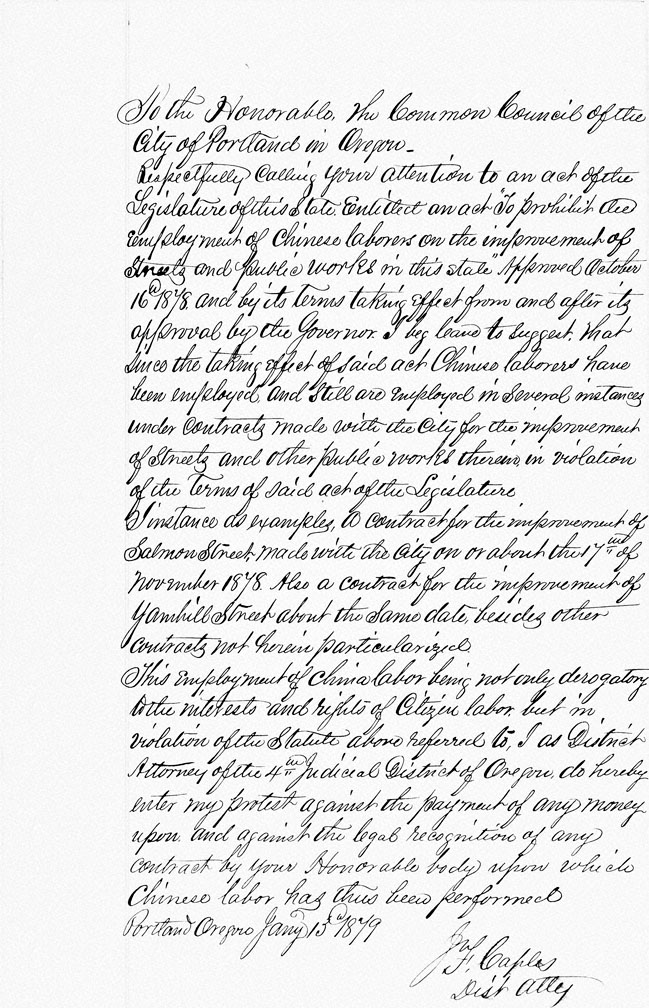 To the Honorable, the Common Council of the
City of Portland in Oregon -
Respectfully calling your attention to an act of the
Legislature of this State. Entitled an act "To prohibit the
employment of Chinese laborers on the improvement of
Streets and public works in this state" Approved October
16th 1878. and by its terms taking effect from and after its
approval by the Governor. I beg leave to suggest, that
since the taking effect of said act Chinese laborers have
been employed, and still are employed in several instances
under contracts made with the city for the improvement
of Streets and other public works therein, in violation
of the terms of said act of the Legislature
I instance as examples, a contract for the improvement of
Salmon Street, made with the city on or about the 17th of
November 1878. Also a contract for the improvement of
Yamhill Street about the same date, besides other
contracts not herein particularized.
This employment of China labor being not only derogatory
to the interests and rights of Citizen labor, but in
violation of the Statute above referred to, I as District
Attorney of the 4th Judicial District of Oregon, do hereby
enter my protest against the payment of any money
upon, and against the legal recognition of any
contract by your Honorable body upon which
Chinese labor has thus been performed
Portland Oregon Jany 15th 1879
J. F. Caples
Dist Atty